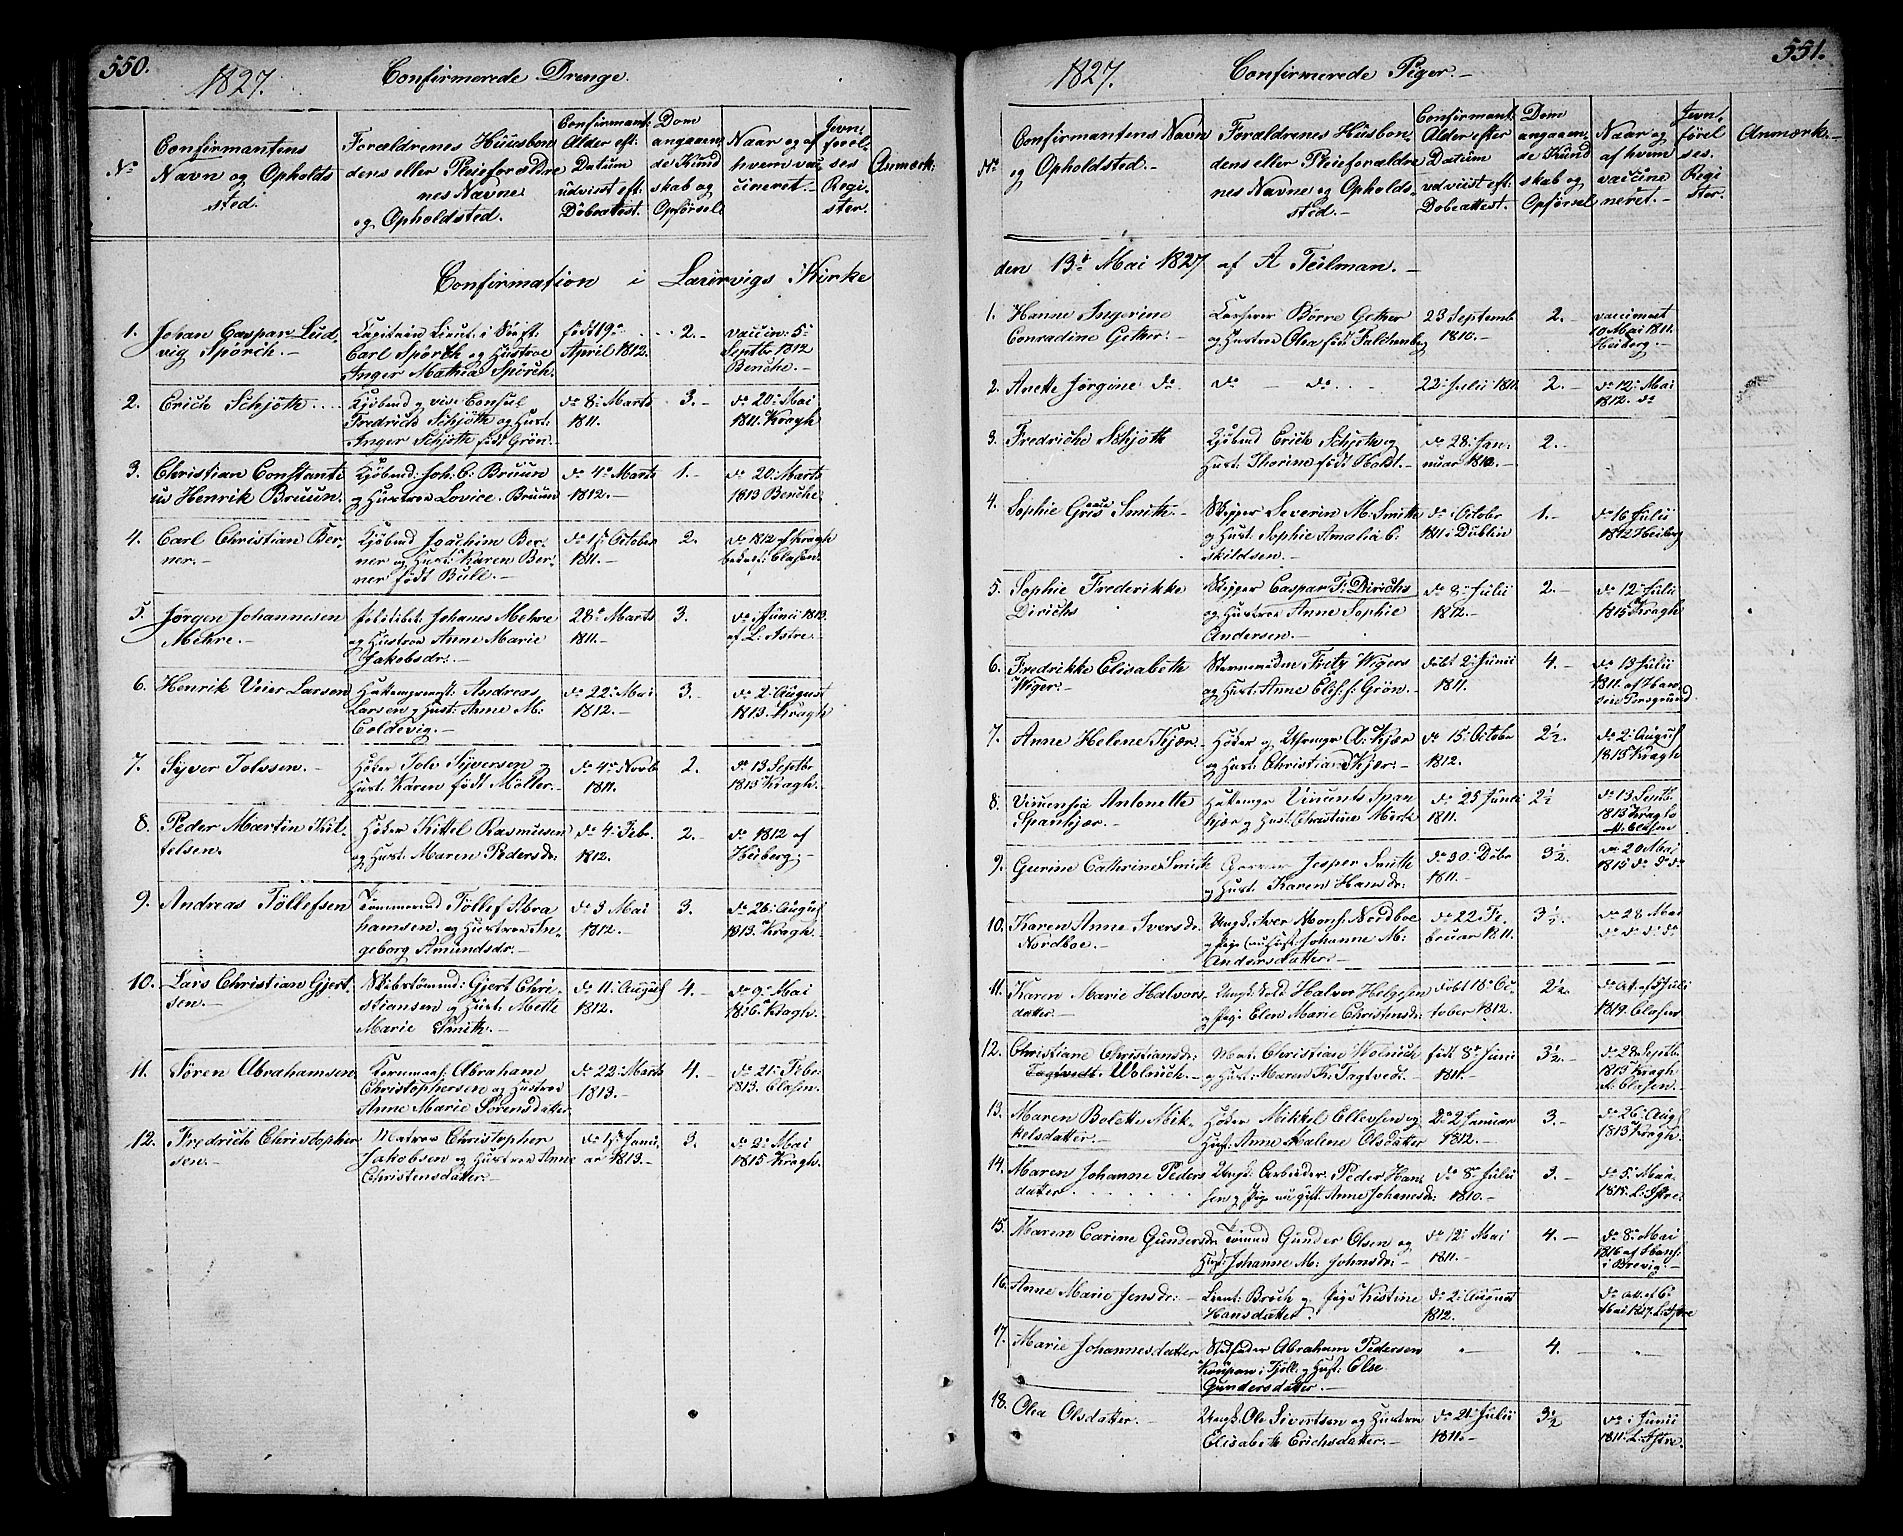 550.
1827.
Confirmerede Drenge.
No
Confirmantens
Navn og Opholds
sted.
Forældrenes Huusbon
dens eller Pleieforældre
nes Navne
og Opholdsted.
Confirmant:
Alder eft:
Datum
udviist eft:
Döbeattest.
Dom
angaaen,
de Kund
skab og
Opförsel
Naar og af
hvem vac
cineret.
Jevn,
förel
ses
Regi
ster.
Anmærk:
Confirmation i Laurvigs Kirke
1. Johan Caspar Lud
vig Spörch.
Capitain Lieut: i Söeft:
Carl Spörch og Hustroe
Inger Mathea Spörch.
född 19de
April 1812.
2.
vaccin: 5te
Septbr 1812
Benche.
2. Erich Schjöth
Kjöbmd og vice Consul
Fredrich Schjöth og Hust:
Inger Schjöth födt Grön.
do 8de Marts
1811.
3.
do 20de Mai
1811. Kragh
3. Christian Constanti
us Henrik Bruun.
Kjöbmd: Joh: C: Bruun
og Hustroe Lovice Bruun
do 4de Marts
1812.
1.
do 20: Marts
1813 Benche.
4. Carl Christian Ber-
ner.
Kjöbmd Joachim Ber
ner og Hust: Karen Ber
ner födt Bull.
do 1ste October
1811.
2.
do 1812 af Kragh
Clasen.
5. Jörgen Johannesen
Mehre.
Johanes Mehre
og Hustroe Anne Marie
Jakobsdr:
28de Marts
1811.
3.
do Junii 1813
af L: Astre.
6. Henrik Veier Larsen
Andreas
Larsen og Hust: Anne M:
Coldevig.
do 22: Mai
1812.
3.
do 2: August
1813. Kragh
7. Syver Tolvsen.
Höker Tolv Syversen og
Hust: Karen födt Möller.
do 4de Novb
1811.
2.
do 13 Septbr
1813 Kragh.
8. Peder Martin Kit
telsen.
Höker Kittel Rasmusen
og Hust: Maren Pedersdr:
do 4: Febr.
1812.
2.
do 1812 af
Heiberg.
9. Andreas Töllefsen
Tömmermd Töllef Abra
hamsen. og Hustroe In,
geborg Amundsdr.
do 3 Mai
1812.
3.
do 26: August
1813. Kragh.
10. Lars Christian Gjert
sen.
Skibstömmd: Gjert Chri
stiansen og Hust: Mette
Marie Smith.
do 11: August
1812.
4.
do 9: Mai
1816. Kragh.
11. Sören Abrahamsen
Abraham
Christophersen og Hustroe
Anne Marie Sörensdatter
do 22: Marts
1813.
4.
do 21: Febr
1813. Clasen.
12. Fredrich Christopher
sen.
Matros Christopher
Jakobsen og Hustroe Anne
Christensdatter.
do 1ste Janu
ar 1813.
3.
do 2: Mai
1815. Kragh.
551.
1827.
Confirmerede Piger.
No
Confirmantens Navn
og Opholdsted.
Forældrenes Husbon
dens eller Pleieforældre
nes Navne og Opholds
sted.
Confirmant
Alder efter
Datum
udviist eft:
Dobeattest.
Dom
angaaen,
de Kund
skab og
Opförsel
Naar og
af hvem
vaccine
neret.
Jevn,
förel
ses.
Regi
ster.
Anmærk.
den 13de Mai 1827 af A Teilman.
1. Hanne Ingerine
Conradine Getker:
Börre Getker
og Hustroe Olea föd Faldenberg
23 Septemb
1810.
2.
vaccineret
10 Mai 1811.
Heiberg.
2. Anette Jörgine do
do do
22: Julii 1811.
2.
do 12: Mai
1812. do
3. Fredriche Schjöth
Kjöbmd Erich Schjöth og
Hust: Thorine födt Holst.
do 28: Jan:
nuar 1812.
2.
4. Sophie Smith.
Skipper Severin M: Smith
og Hust: Sophie Amalia E:
skildsen.
do October
1811 i Dublin
1.
do 16 Julii
1812 Heiberg
5. Sophie Frederikke
Dirichs
Skipper Caspar F: Dirichs
og Hustroe Anne Sophie
Andersen.
do 8de Julii
1812.
2.
do 12te Julii
1815 Kragh
6. Fredrikke Elisabeth
Wiger.
Fritz Wigers
og Hust: Anne Elis: f: Grön.
födt 2: Junii
1811.
4.
do 13 Julii
1811. af
7. Anne Helene Kjær.
Höker og A: Kjær
og Hust: Christiane Kjær.
do 15: Octobr
1812.
2½.
do 2: August
1813 Kragh
8. Vincensia Antonette
Spankjær.
Vincents Span
kjær og Hust: Christine
do 25 Junii
1811.
2½
do 13 Septb
1813 Kragh
Clasen
9. Gurine Cathrine Smith
Jesper Smith
og Hust: Karen Hansdr:
do 30: Decbr
1811.
3½.
do 20 Mai
1815 do do do
10. Karen Anne Iversdr
Nordboe.
Iver Nordboe
Johanne M:
Andersdatter.
do 22 Fe,
bruar 1811.
3½.
do 28 Mai
do do do do
11. Karen Marie Halvors
datter.
Halvor Helgesen
og Pige Elen Marie Christensdr:
födt 18de Oc
tober 1812.
2½.
Julii
1819. Clasen
12. Christiane Christiansdr:
Wolnich.
Mat: Christian Wolnich
og Hust: Maren K: Tagtvedt.
födt 8de Juni
1811.
3½.
do 28 Septb.
1813 Kragh
Clasen.
13. Maren Bolette Mik
kelsdatter.
Höker Mikkel Ellevsen og
Hust: Anne Malene Olsdatter
do 2 Januar
1812.
3.
do 26: Aug
1813 Kragh.
14. Maren Johanne Peders
datter
Ungk: Arbeider. Peder Han
sen og Pige nu gift. Anne Johanesdr:
do 8de Julii
1810.
3.
do 5: Mai
L: Astre.
15. Maren Carine Gundersdr
Tömmd Gunder Olsen og
Hust: Johanne M: Johnsdr:
do 12: Mai
1811.
4.
do 8de Mai
1816 af Hans:
i Brevig.
16. Anne Marie Jensdr:
Lieut: Broch og Pige Kistine
Hansdatter.
do 2: August
1812.
Mai 1827. L: Astre
17. Marie Johannesdatter
Stedfader Abraham Pedersen
i Tjöll: og Hust: Else
Gundersdatter.
4.
18. Olea Olsdatter.
Ungk. Ole Sivertsen og Hustroe
Elisabeth Erichsdatter.
do 21: Julii
1811.
3½
do 1 Junii
1811: L: Astre.